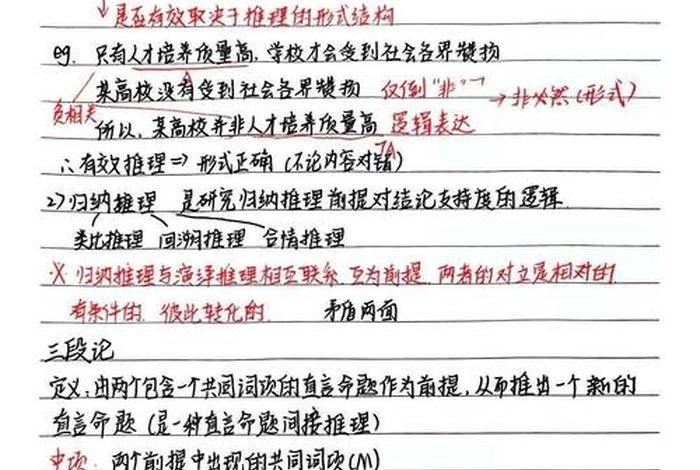 ↓是否有效取决于推理的形式结构
eg. 只有人才培养质量高,学校才会受到社会各界赞扬
某高校没有受到社会各界赞扬 仅倒"非"¬ → 非必然(形式)
负相关
所以,某高校并非人才培养质量高 逻辑表达
¬A
∴有效推理⇒形式正确(不论内容对错)
2)归纳推理 是研究归纳推理前提对结论支持度的逻辑.
类比推理 回溯推理 合情推理
※归纳推理与演绎推理相互联系.互为前提.两者的对立是相对的.
有条件的.彼此转化的. 矛盾两面
三段论
定义:由两个包含一个共同词项的直言命题作为前提,从而推出一个新的
直言命题(是一种直言命题间接推理)
中项:两个前提中出现的共同词项(M)